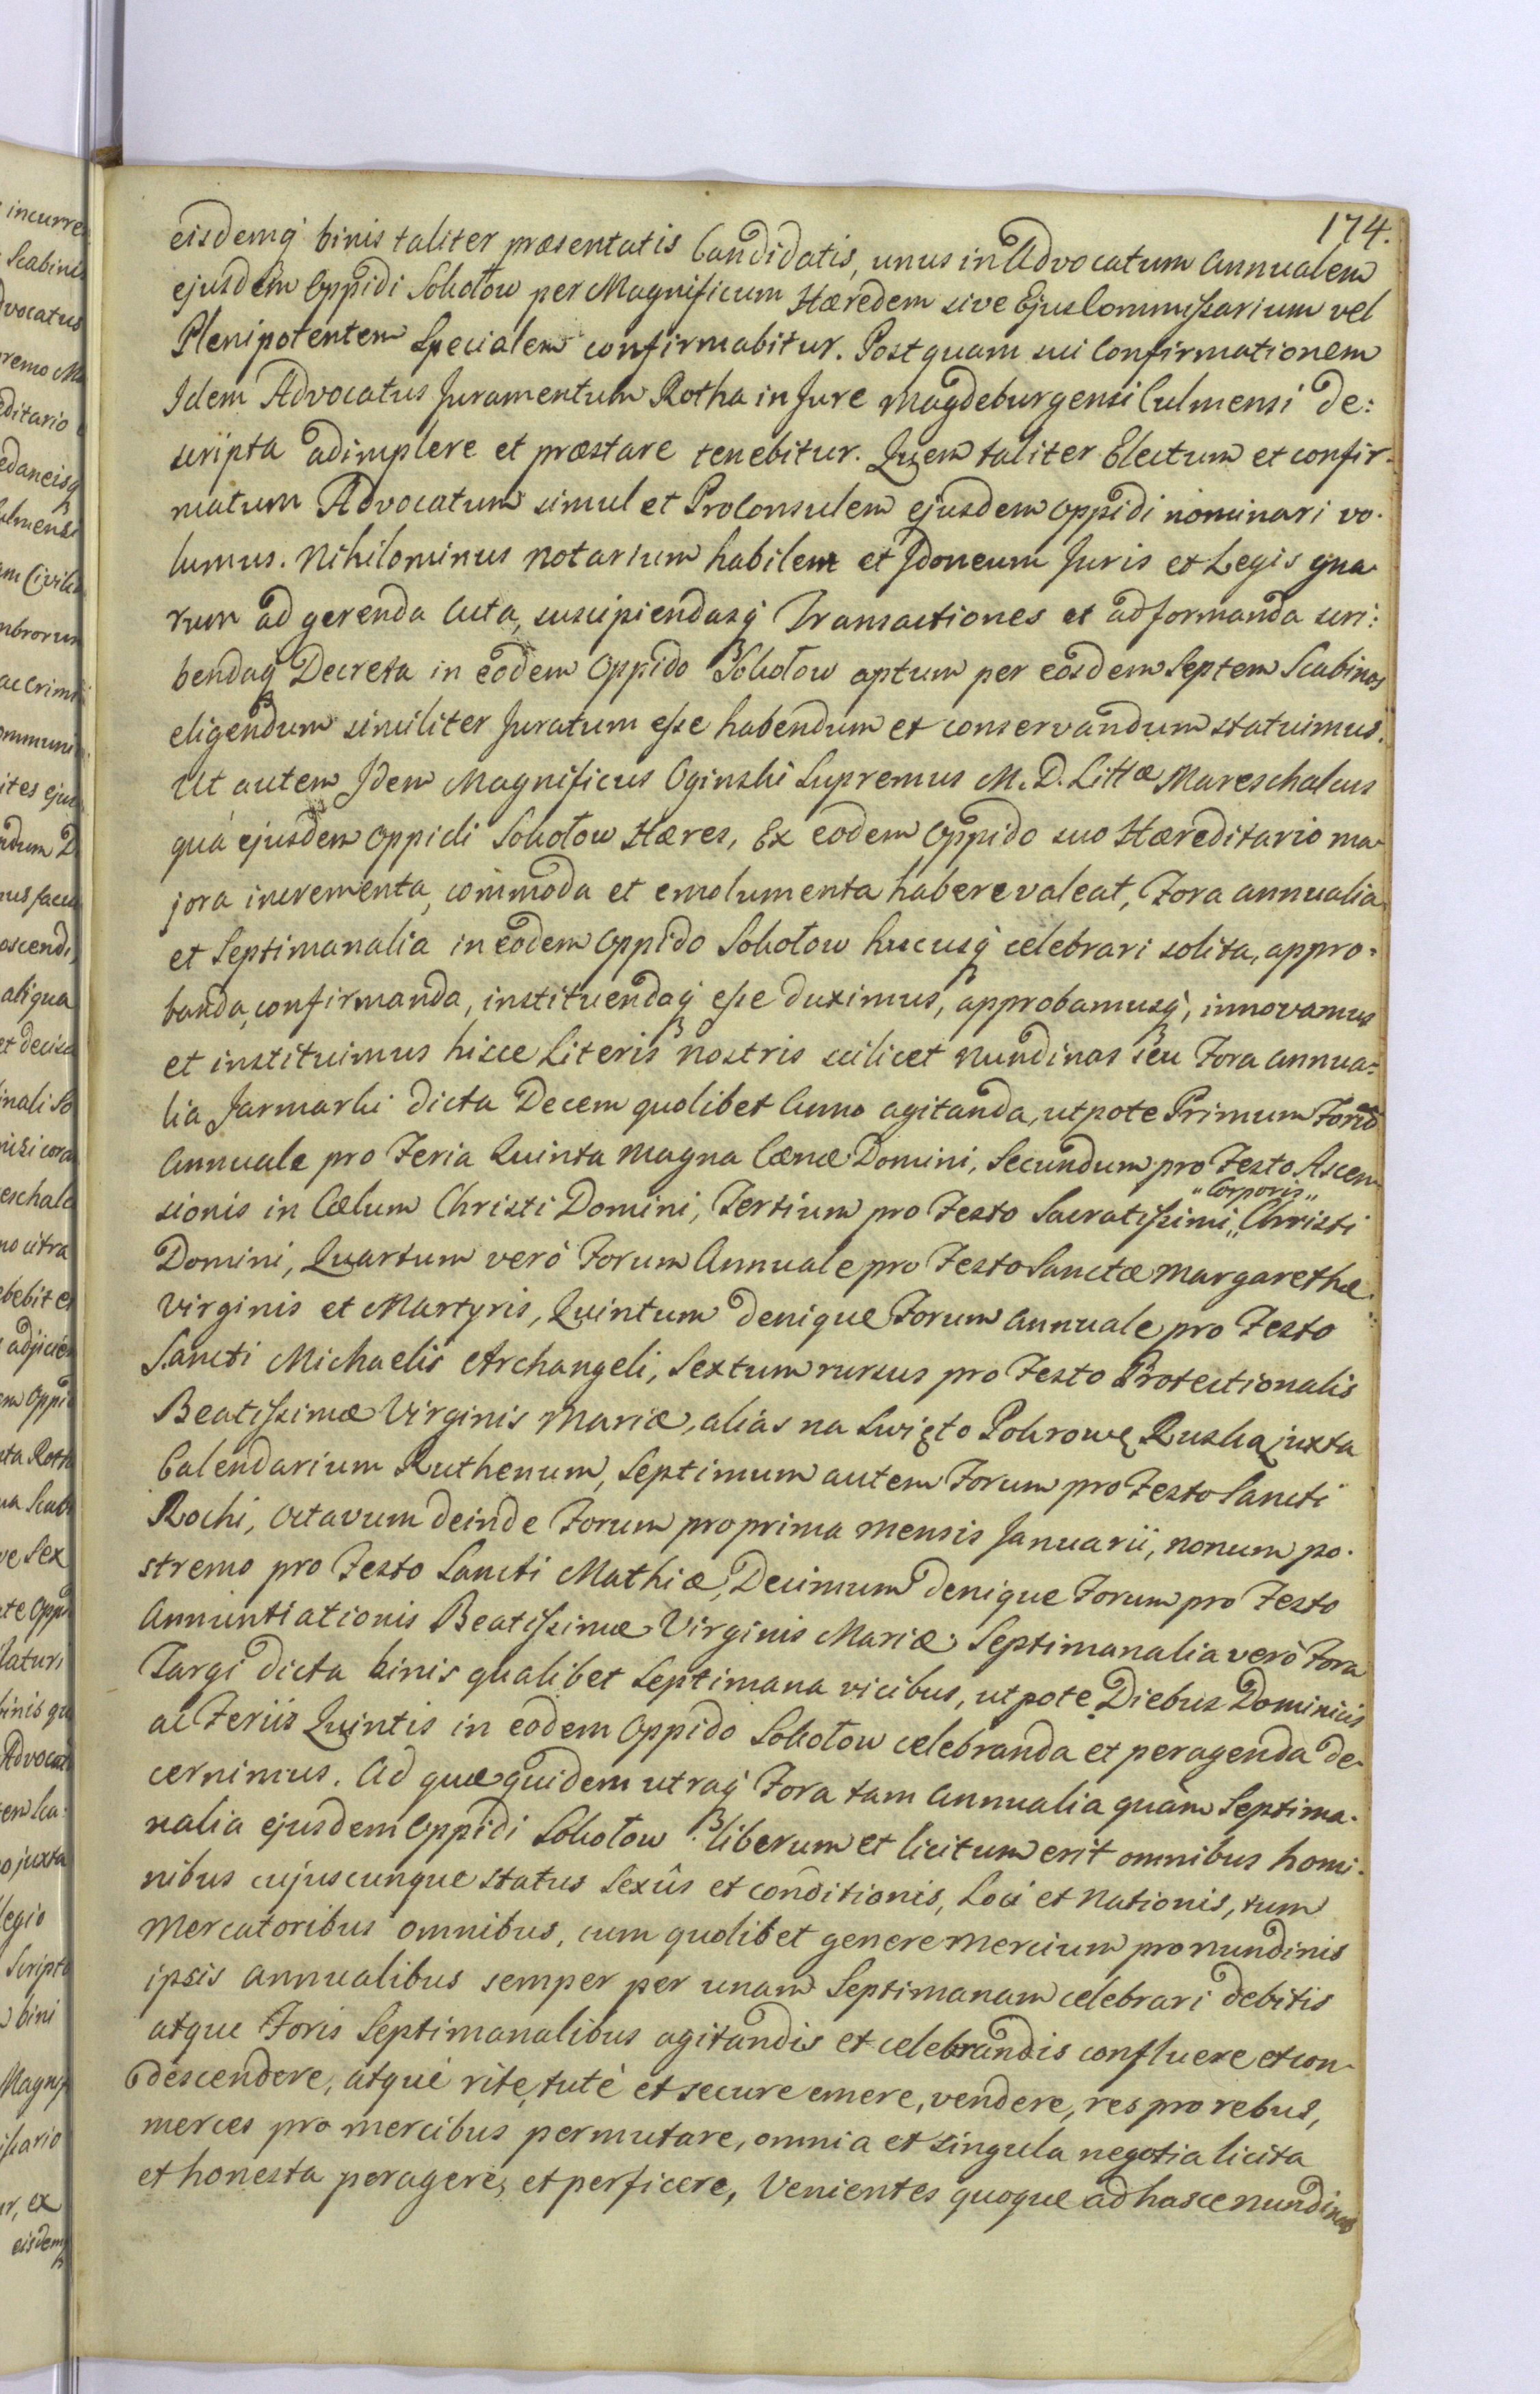 174.
eisdemq́ binis taliter præsentatis Candidatis, unus in Advocatum Annualem
ejusdem Oppidi Sokołow per Magnificum Hæredem sive Ejus Commissarium vel
Plenipotentem Specialem confirmabitur. Post quam sui Confirmationem
Idem Advocatus Juramentum Rotha in Jure Magdeburgensi Culmensi de:
scripta adimplere et præstare tenebitur. Quem taliter Electum et confir-
matum Advocatum simul et Proconsulem ejusdem Oppidi nominari vo-
lumus. Nihilominus Notarium habilem et Idoneum Juris et Legis gna-
rum ad gerenda Acta, suscipiendasq́ Transactiones et ad formanda scri:
bendaq́ Decreta in eodem Oppido Sokołow aptum per eosdem Septem Scabinos
eligendum similiter Juratum esse habendum et conservandum statuimus.
Ut autem Idem Magnificus Oginski Supremus M. D. Littæ Mareschalcus
quà ejusdem Oppidi Sokołow Hæres, Ex eodem Oppido suo Hæreditario ma-
jora incrementa, commoda et emolumenta habere valeat, Fora annualia
et Septimanalia in eodem Oppido Sokołow hucusq́ celebrari solita, appro-
banda, confirmanda, instituendaq́ esse duximus, approbamusq́, innovamus
et instituimus hisce Literis nostris scilicet Nundinas seu Fora Annua-
lia Jarmarki dicta Decem quolibet Anno agitanda, utpote Primum Forũ
Annuale pro Feria Quinta Magna Cænæ Domini, Secundum pro Festo Ascen-
sionis in Cælum Christi Domini, Tertium pro Festo Sacratissimi „Corporis„ Christi
Domini, Quartum verò Forum Annuale pro Festo Sanctæ Margarethæ
Virginis et Martyris, Quintum denique Forum Annuale pro Festo
Sancti Michaelis Archangeli, Sextum rursus pro Festo Protectionalis
Beatissimæ Virginis Mariæ, aliàs na Swięto Pokrowę Ruską juxta
Calendarium Ruthenum, Septimum autem Forum pro Festo Sancti
Rochi, Octavum deinde Forum pro prima Mensis Januarii, nonum po-
stremo pro Festo Sancti Mathiæ, Decimum denique Forum pro Festo
Annuntiationis Beatissimæ Virginis Mariæ; Septimanalia verò Fora
Targi dicta binis qualibet Septimana vicibus, utpote Diebus Dominicis
ac Feriis Quintis in eodem Oppido Sokołow celebranda et peragenda de-
cernimus. Ad quæ quidem utraq́ Fora tam Annualia quàm Septima-
nalia ejusdem Oppidi Sokołow liberum et licitum erit omnibus homi-
nibus cujuscunque Status Sexûs et Conditionis, Loci et Nationis, tum
Mercatoribus omnibus, cum quolibet genere Mercium pro nundinis
ipsis Annualibus semper per unam Septimanam celebrari debitis
atque Foris Septimanalibus agitandis et celebrandis confluere et con-
descendere, atque rite, tutè et secure emere, vendere, res pro rebus,
merces pro mercibus permutare, omnia et singula negotia licita
et honesta peragere, et perficere, Venientes quoque ad hasce nundinas